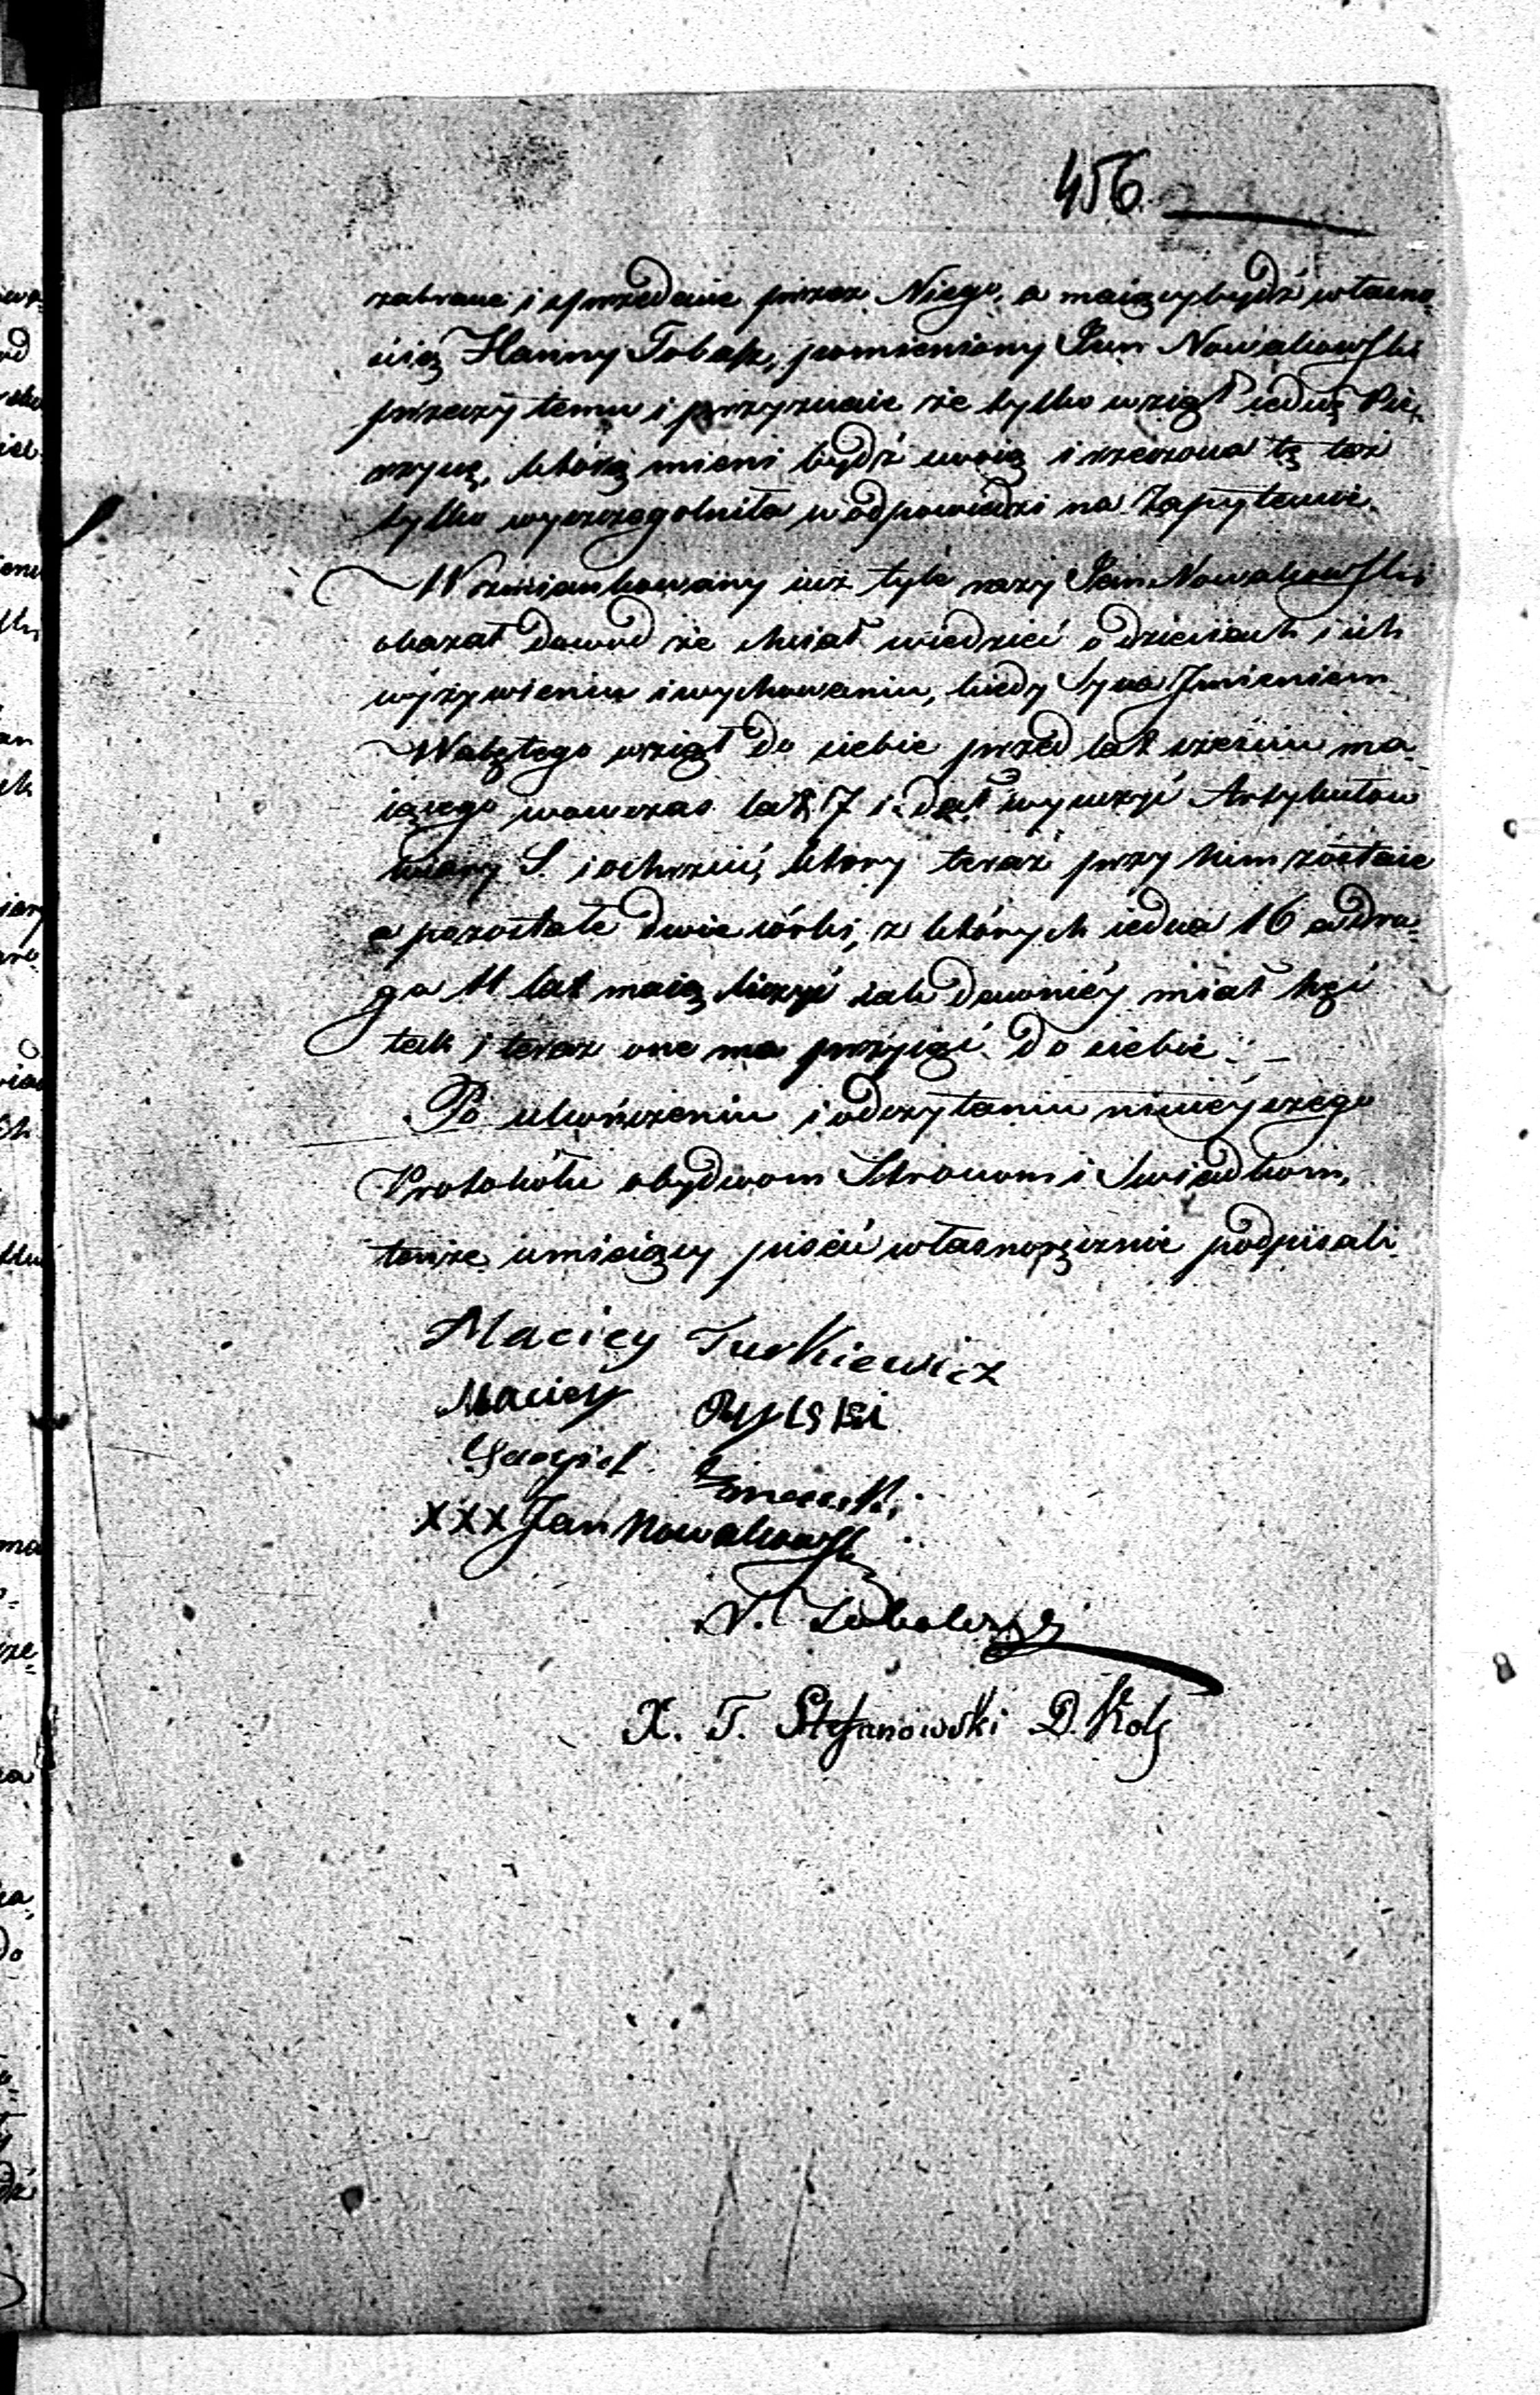 456.
zabrane i sprzedane przez Niego, a maiący bydź własno
ścią Hanny Tobask, pomieniony Jan Nowakowski
przeczy temu i przyznaie że tylko wziął iedną Pie-
rzynę, którą mieni bydź swoią i rzeczona tę też
tylko wyszczegolniła w odpowiedzi na Zapytanie.
Wzmiankowany iuż tyle razy Jan Nowakowski
okazał dowod że chciał wiedzieć o dzieciach i ich
wyżywieniu i wychowaniu, kiedy Syna Imieniem
Walętego wziął do siebie przed lat sześciu ma-
iącego wowczas lat 7 i dał wyuczyć Artykułow
wiary S. i ochrzcić, ktory teraz przy nim zostaie
a pozostałe dwie córki, z których iedna 16 a dru-
ga 11 lat maią liczyć iak dawniéy miał chęć
tak i teraz one ma przyiąć do siebie. –
Po ukończeniu i odczytaniu ninieyszego
Protokółu obydwom Stronom i Swiadkom,
tenże umieiący pisać własnoręcznie podpisali
Maciey Turkiewicz
Maciey Rylski
XXX Jan Nowakowski
X. T. Stefanowski D. Kolź